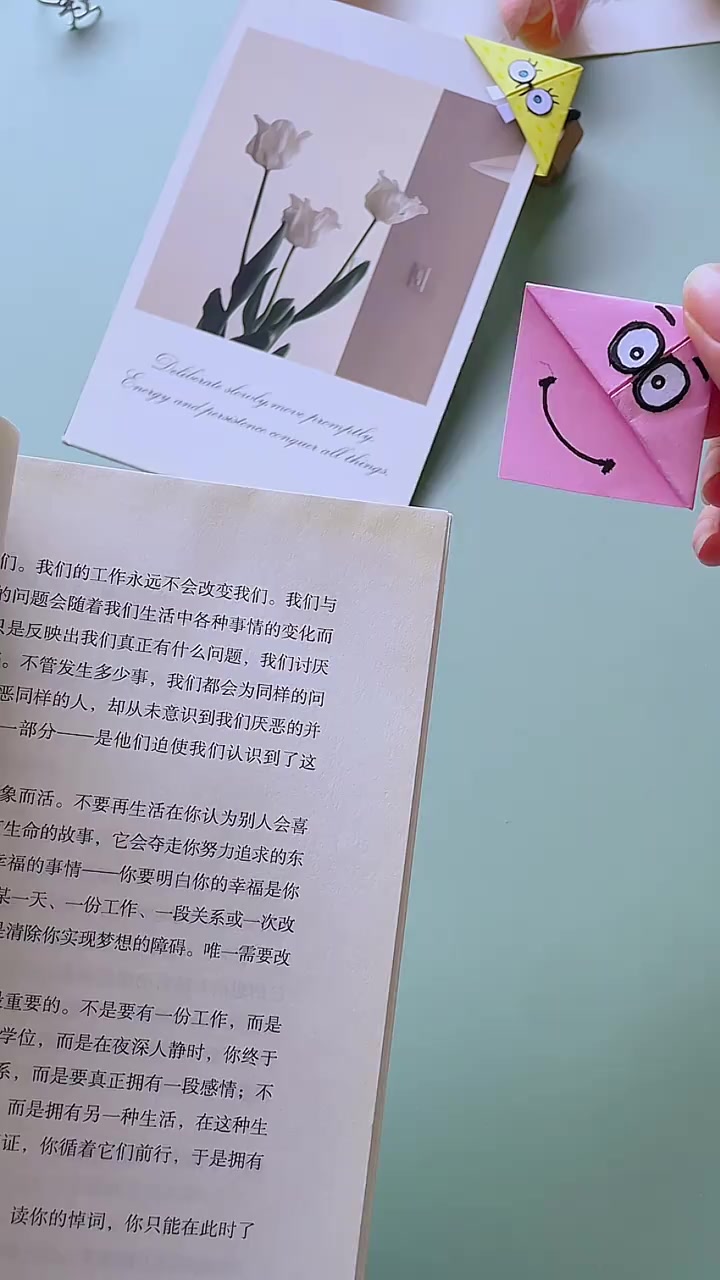 Deliberate slowly, move promptly.
Energy and persistence conquer all things.
们。我们的工作永远不会改变我们。我们与
的问题会随着我们生活中各种事情的变化而
只是反映出我们真正有什么问题，我们讨厌
。不管发生多少事，我们都会为同样的问
恶同样的人，却从未意识到我们厌恶的并
一部分——是他们迫使我们认识到了这
象而活。不要再生活在你认为别人会喜
生命的故事，它会夺走你努力追求的东
幸福的事情——你要明白你的幸福是你
某一天、一份工作、一段关系或一次改
是清除你实现梦想的障碍。唯一需要改
重要的。不是要有一份工作，而是
学位，而是在夜深人静时，你终于
系，而是要真正拥有一段感情；不
而是拥有另一种生活，在这种生
证，你循着它们前行，于是拥有
读你的悼词，你只能在此时了